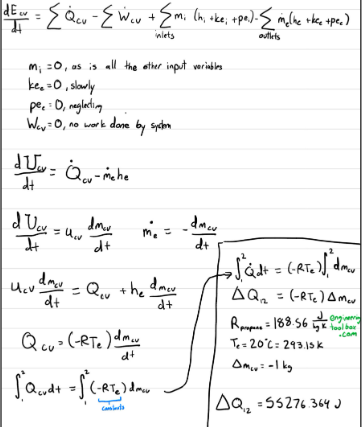 dE_cv/dt = ΣQ̇_cv - ΣẆ_cv + Σ_inlets ṁ_i (h_i + ke_i + pe_i) - Σ_outlets ṁ_e (h_e + ke_e + pe_e)
ṁ_i = 0, as is all the other input variables
ke_e = 0, slowly
pe_e = 0, neglecting
W_cv = 0, no work done by system
dU_cv/dt = Q̇_cv - ṁ_e h_e
dU_cv/dt = u_cv dm_cv/dt    ṁ_e = - dm_cv/dt
u_cv dm_cv/dt = Q_cv + h_e dm_cv/dt
Q_cv = (-RT_e) dm_cv/dt
∫₁² Q_cv dt = ∫₁² (-RT_e) dm_cv
constants
∫₁² Q̇ dt = (-RT_e) ∫₁² dm_cv
ΔQ₁₂ = (-RT_e) Δm_cv
R_propane = 188.56 J/kg K engineering
toolbox
.com
T_e = 20°C = 293.15K
Δm_cv = -1 kg
ΔQ₁₂ = 55276.364 J